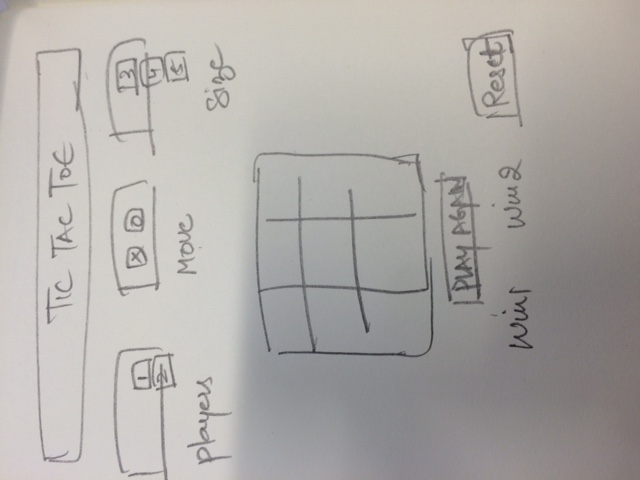 TIC TAC TOE
1
2
X O
3
4
5
players
Move
Size
PLAY AGAIN
Win1 Win2
Reset